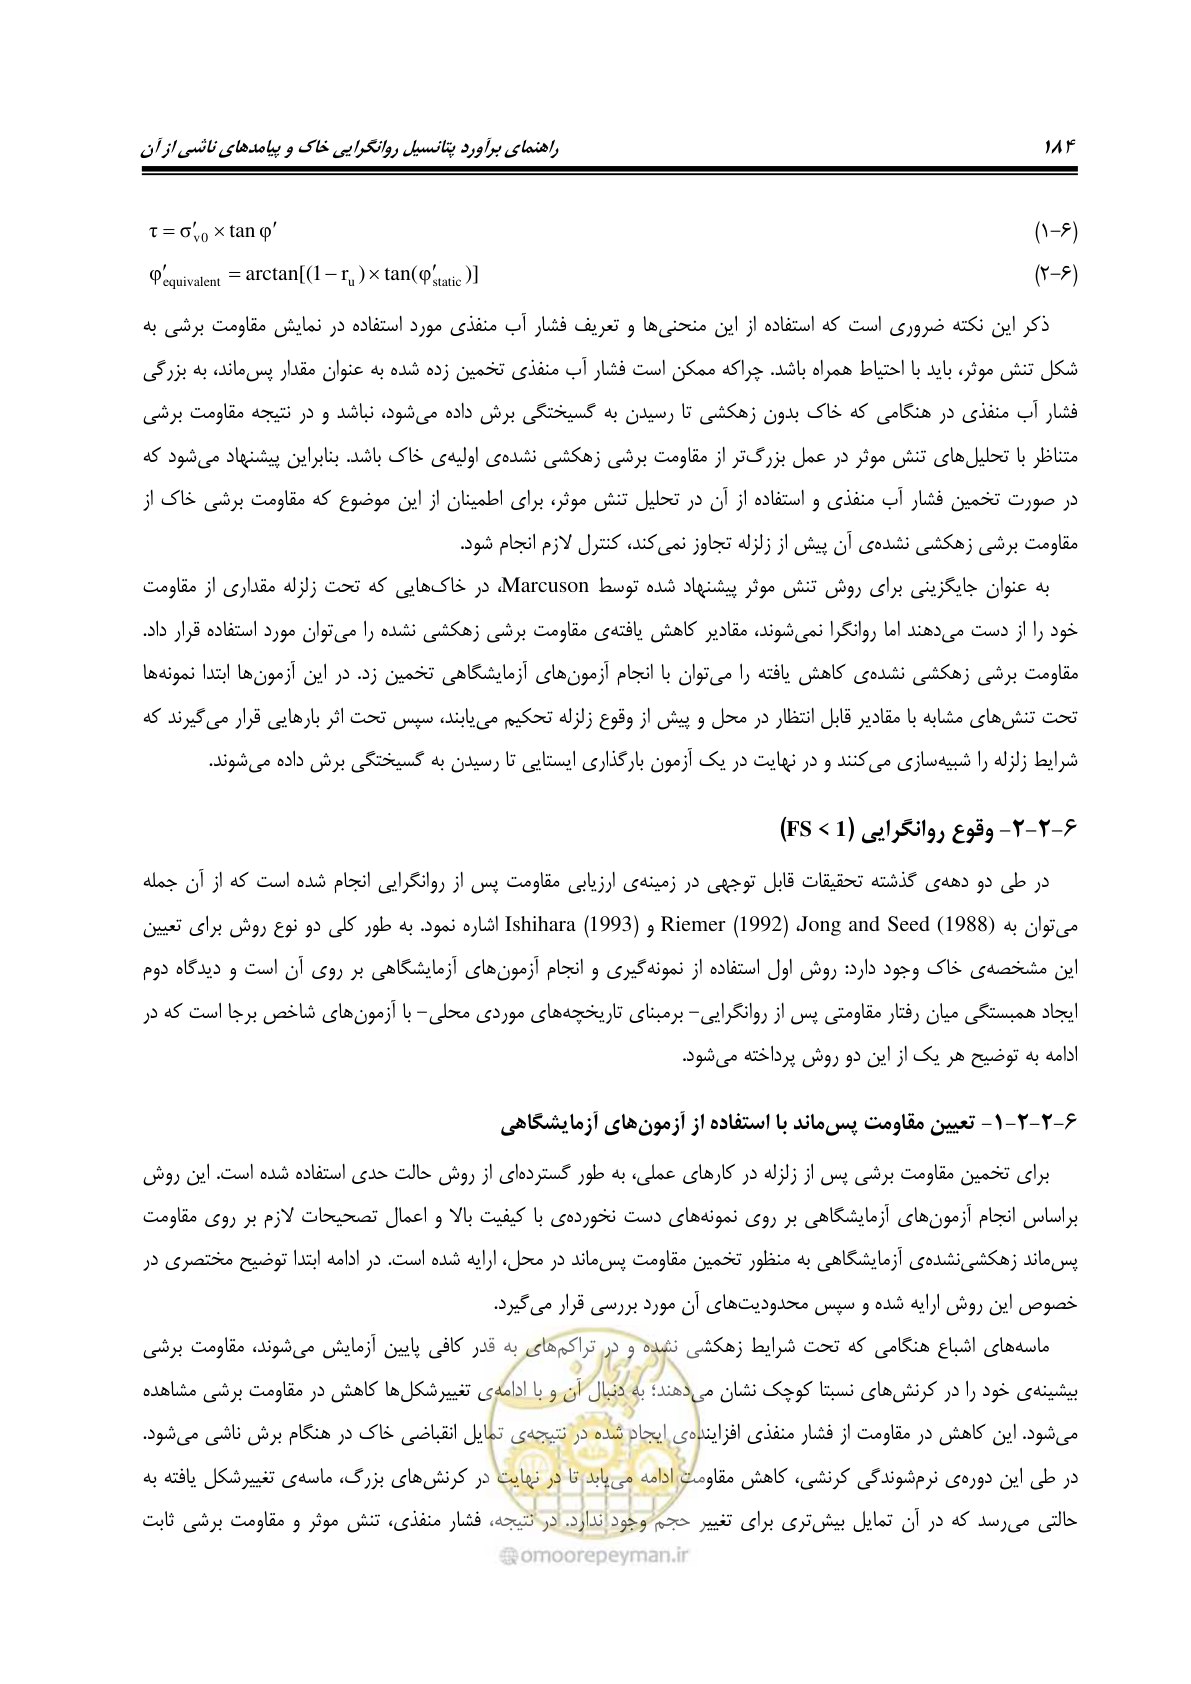 ۱۸۴ راهنمای برآورد پتانسیل روانگرایی خاک و پیامدهای ناشی از آن
τ = σ′v0 × tan φ′ (۶-۱)
φ′equivalent = arctan[(1 − ru) × tan(φ′static)] (۶-۲)
ذکر این نکته ضروری است که استفاده از این منحنی‌ها و تعریف فشار آب منفذی مورد استفاده در نمایش مقاومت برشی به
شکل تنش موثر، باید با احتیاط همراه باشد. چراکه ممکن است فشار آب منفذی تخمین زده شده به عنوان مقدار پس‌ماند، به بزرگی
فشار آب منفذی در هنگامی که خاک بدون زهکشی تا رسیدن به گسیختگی برش داده می‌شود، نباشد و در نتیجه مقاومت برشی
متناظر با تحلیل‌های تنش موثر در عمل بزرگ‌تر از مقاومت برشی زهکشی نشده‌ی اولیه‌ی خاک باشد. بنابراین پیشنهاد می‌شود که
در صورت تخمین فشار آب منفذی و استفاده از آن در تحلیل تنش موثر، برای اطمینان از این موضوع که مقاومت برشی خاک از
مقاومت برشی زهکشی نشده‌ی آن پیش از زلزله تجاوز نمی‌کند، کنترل لازم انجام شود.
به عنوان جایگزینی برای روش تنش موثر پیشنهاد شده توسط Marcuson، در خاک‌هایی که تحت زلزله مقداری از مقاومت
خود را از دست می‌دهند اما روانگرا نمی‌شوند، مقادیر کاهش یافته‌ی مقاومت برشی زهکشی نشده را می‌توان مورد استفاده قرار داد.
مقاومت برشی زهکشی نشده‌ی کاهش یافته را می‌توان با انجام آزمون‌های آزمایشگاهی تخمین زد. در این آزمون‌ها ابتدا نمونه‌ها
تحت تنش‌های مشابه با مقادیر قابل انتظار در محل و پیش از وقوع زلزله تحکیم می‌یابند، سپس تحت اثر بارهایی قرار می‌گیرند که
شرایط زلزله را شبیه‌سازی می‌کنند و در نهایت در یک آزمون بارگذاری ایستایی تا رسیدن به گسیختگی برش داده می‌شوند.
۶-۲-۲- وقوع روانگرایی (FS < 1)
در طی دو دهه‌ی گذشته تحقیقات قابل توجهی در زمینه‌ی ارزیابی مقاومت پس از روانگرایی انجام شده است که از آن جمله
می‌توان به Jong and Seed (1988)، Riemer (1992) و Ishihara (1993) اشاره نمود. به طور کلی دو نوع روش برای تعیین
این مشخصه‌ی خاک وجود دارد: روش اول استفاده از نمونه‌گیری و انجام آزمون‌های آزمایشگاهی بر روی آن است و دیدگاه دوم
ایجاد همبستگی میان رفتار مقاومتی پس از روانگرایی- برمبنای تاریخچه‌های موردی محلی- با آزمون‌های شاخص برجا است که در
ادامه به توضیح هر یک از این دو روش پرداخته می‌شود.
۶-۲-۲-۱- تعیین مقاومت پس‌ماند با استفاده از آزمون‌های آزمایشگاهی
برای تخمین مقاومت برشی پس از زلزله در کارهای عملی، به طور گسترده‌ای از روش حالت حدی استفاده شده است. این روش
براساس انجام آزمون‌های آزمایشگاهی بر روی نمونه‌های دست نخورده‌ی با کیفیت بالا و اعمال تصحیحات لازم بر روی مقاومت
پس‌ماند زهکشی‌نشده‌ی آزمایشگاهی به منظور تخمین مقاومت پس‌ماند در محل، ارایه شده است. در ادامه ابتدا توضیح مختصری در
خصوص این روش ارایه شده و سپس محدودیت‌های آن مورد بررسی قرار می‌گیرد.
ماسه‌های اشباع هنگامی که تحت شرایط زهکشی نشده و در تراکم‌های به قدر کافی پایین آزمایش می‌شوند، مقاومت برشی
بیشینه‌ی خود را در کرنش‌های نسبتا کوچک نشان می‌دهند؛ به دنبال آن و با ادامه‌ی تغییرشکل‌ها کاهش در مقاومت برشی مشاهده
می‌شود. این کاهش در مقاومت از فشار منفذی افزاینده‌ی ایجاد شده در نتیجه‌ی تمایل انقباضی خاک در هنگام برش ناشی می‌شود.
در طی این دوره‌ی نرم‌شوندگی کرنشی، کاهش مقاومت ادامه می‌یابد تا در نهایت در کرنش‌های بزرگ، ماسه‌ی تغییرشکل یافته به
حالتی می‌رسد که در آن تمایل بیش‌تری برای تغییر حجم وجود ندارد. در نتیجه، فشار منفذی، تنش موثر و مقاومت برشی ثابت
امور پیمان
@omoorepeyman.ir